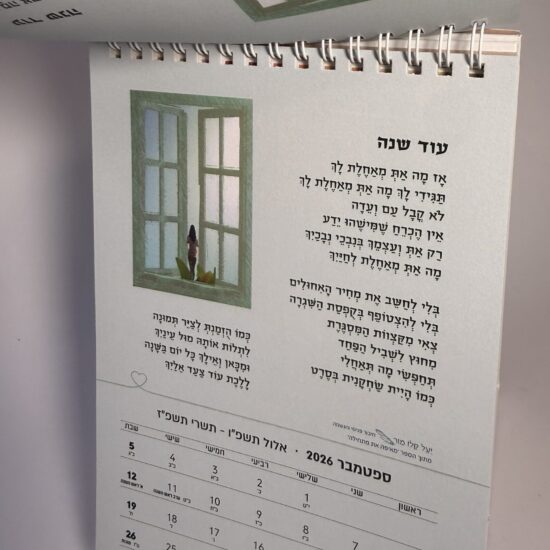 עוד שנה
אָז מָה אַתְּ מְאַחֶלֶת לָךְ
תַּגִּידִי לָךְ מָה אַתְּ מְאַחֶלֶת לָךְ
לֹא קֳבָל עַם וְעֵדָה
אֵין הֶכְרֵחַ שֶׁמִּישֶׁהוּ יֵדַע
רַק אַתְּ וְעַצְמֵךְ בְּנִבְכֵי נְבָכַיִךְ
מָה אַתְּ מְאַחֶלֶת לְחַיַּיִךְ
בְּלִי לְחַשֵּׁב אֶת מְחִיר הָאִחוּלִים
בְּלִי לְהִצְטוֹפֵף בְּקֻפְסַת הַשִּׁגְרָה
צְאִי מִקַּצְווֹת הַמִּסְגֶּרֶת
מִחוּץ לִשְׁבִיל הַפַּחַד
תְּחַפְּשִׂי מָה תְּאַחֲלִי
כְּמוֹ הָיִית שַׂחְקָנִית בְּסֶרֶט
כְּמוֹ הֻזְמַנְתְּ לְצַיֵּר תְּמוּנָה
לִתְלוֹת אוֹתָהּ מוּל עֵינַיִךְ
וּמִכָּאן וְאֵילָךְ כָּל יוֹם בַּשָּׁנָה
לָלֶכֶת עוֹד צַעַד אֵלַיִךְ
יעל קלו מור
חיבור פנימי והעצמה
מתוך הספר
ספטמבר 2026 · אלול תשפ"ו - תשרי תשפ"ז
ראשון שני שלישי רביעי חמישי שישי שבת
1 2 3 4 5
י"ט כ' כ"א כ"ב כ"ג
7 8 9 10 11 12
כ"ו כ"ז כ"ח כ"ט ערב ראש השנה א' ראש השנה
16 17 18 19
ו' ז' ח'
25 26